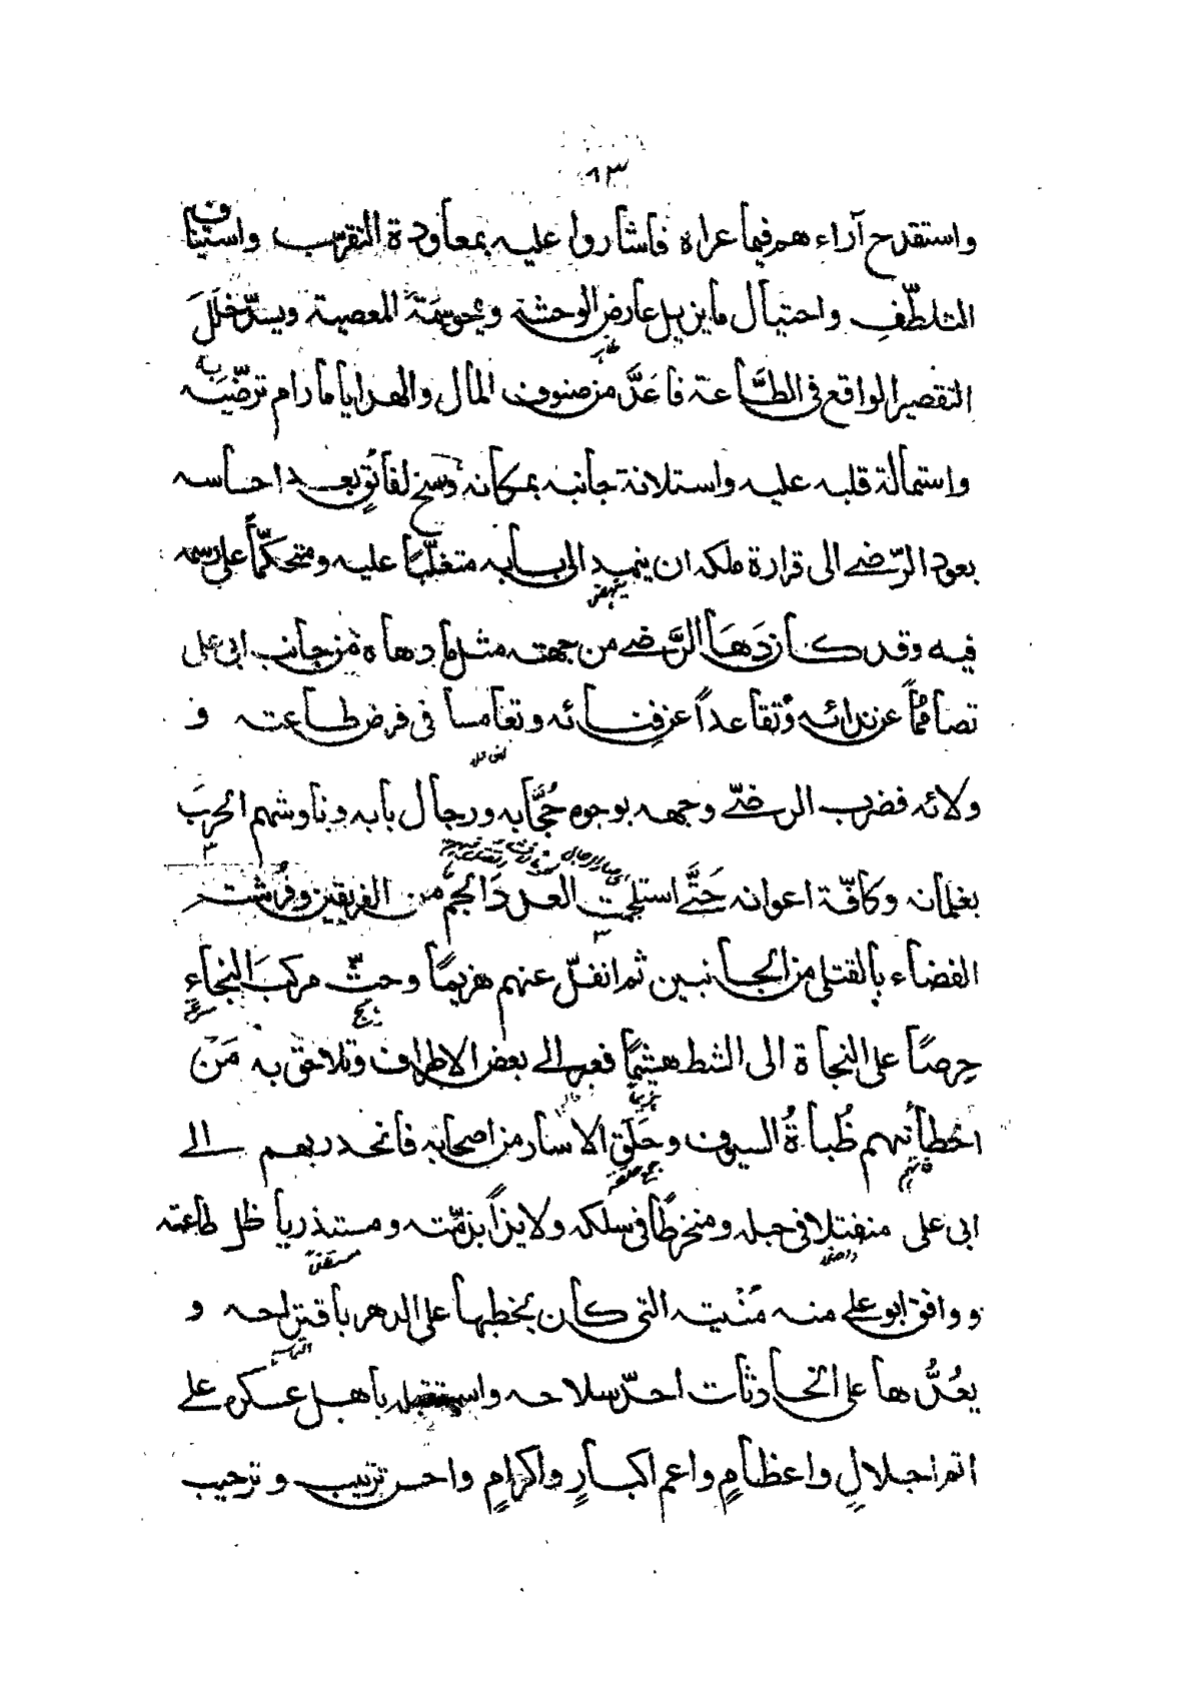 ٨٣
واستقدح آراءهم فيما عراه فاشاروا عليه بمعاودة التقرّب واستيناف
التلطّف واحتيال ما يزيل عارض الوحشة ويمحو سمة المعصية ويسدّ خلل
التقصير الواقع فى الطّاعة فاعدَّ من صنوف المال والهدايا ما رام ترضّيه به
واستمالة قلبه عليه واستلانة جانبه بمكانه وسنح لفائق بعد احساسه
بعود الرّضى الى قرارة ملكه ان ينهد الى بابه متغلّبًا عليه ومتحكّمًا على رسمه
ينهض
فيه وقد كان دَهَا الرَّضى من جهته مثل ما دهاه من جانب ابى على
تصامُمًا عن ندائه وتقاعدًا عن فنائه وتغامسا فى فرض طاعته و
ولائه فضرب الرضىّ وجهه بوجوه حُجَّابه ورجال بابه وناوشهم الحربَ
بغلمانه وكافّة اعوانه حَتَّى استلحمت العددَ الجمَّ من الفريقين وفرشت
الفضاء بالقتلى من الجانبين ثم انفلّ عنهم هزيمًا وحثّ مركبَ النجاءِ
حِرصًا على النجاة الى الشط هشيمًا فعبر الى بعض الاطراف وتلاحق به مَن
اخطأتهم ظُباةُ السيوف وحَلَق الاسار من اصحابه فانحدر بهم الى
ابى على منفتلا فى حبله ومنخرطًا فى سلكه ولايذًا بذمّته ومستذريا ظل طاعته
ووافق ابو على منه مُنْيته التى كان يخطبها على الدهر باقتراحه و
يعُدُّها على الحادثات احدّ سلاحه واستقبله باهل عسكره على
اتم اجلالٍ واعظامٍ واعم اكبارٍ واكرامٍ واحسن ترتيب وترحيب